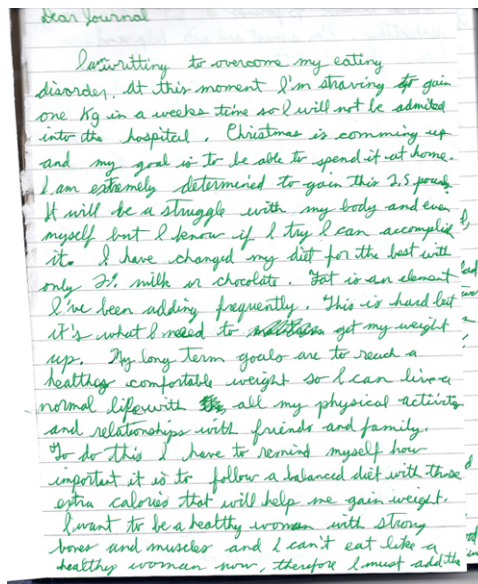 Dear Journal
I am writting to overcome my eating
disorder. At this moment I'm straving to gain
one Kg in a weeks time so I will not be admited
into the hospital. Christmas is comming up
and my goal is to be able to spend it at home.
I am extremely determined to gain this 2.5 pounds
It will be a struggle with my body and even
myself but I know if I try I can accomplish
it. I have changed my diet for the best with
only 2% milk or chocolate. Fat is an element
I've been adding frequently. This is hard but
it's what I need to get my weight
up. My long term goals are to reach a
healthy comfortable weight so I can live a
normal life with all my physical activity
and relationships with friends and family.
To do this I have to remind myself how
important it is to follow a balanced diet with those
extra calories that will help me gain weight.
I want to be a healthy woman with strong
bones and muscles and I can't eat like a
healthy woman now, therefore I must add the